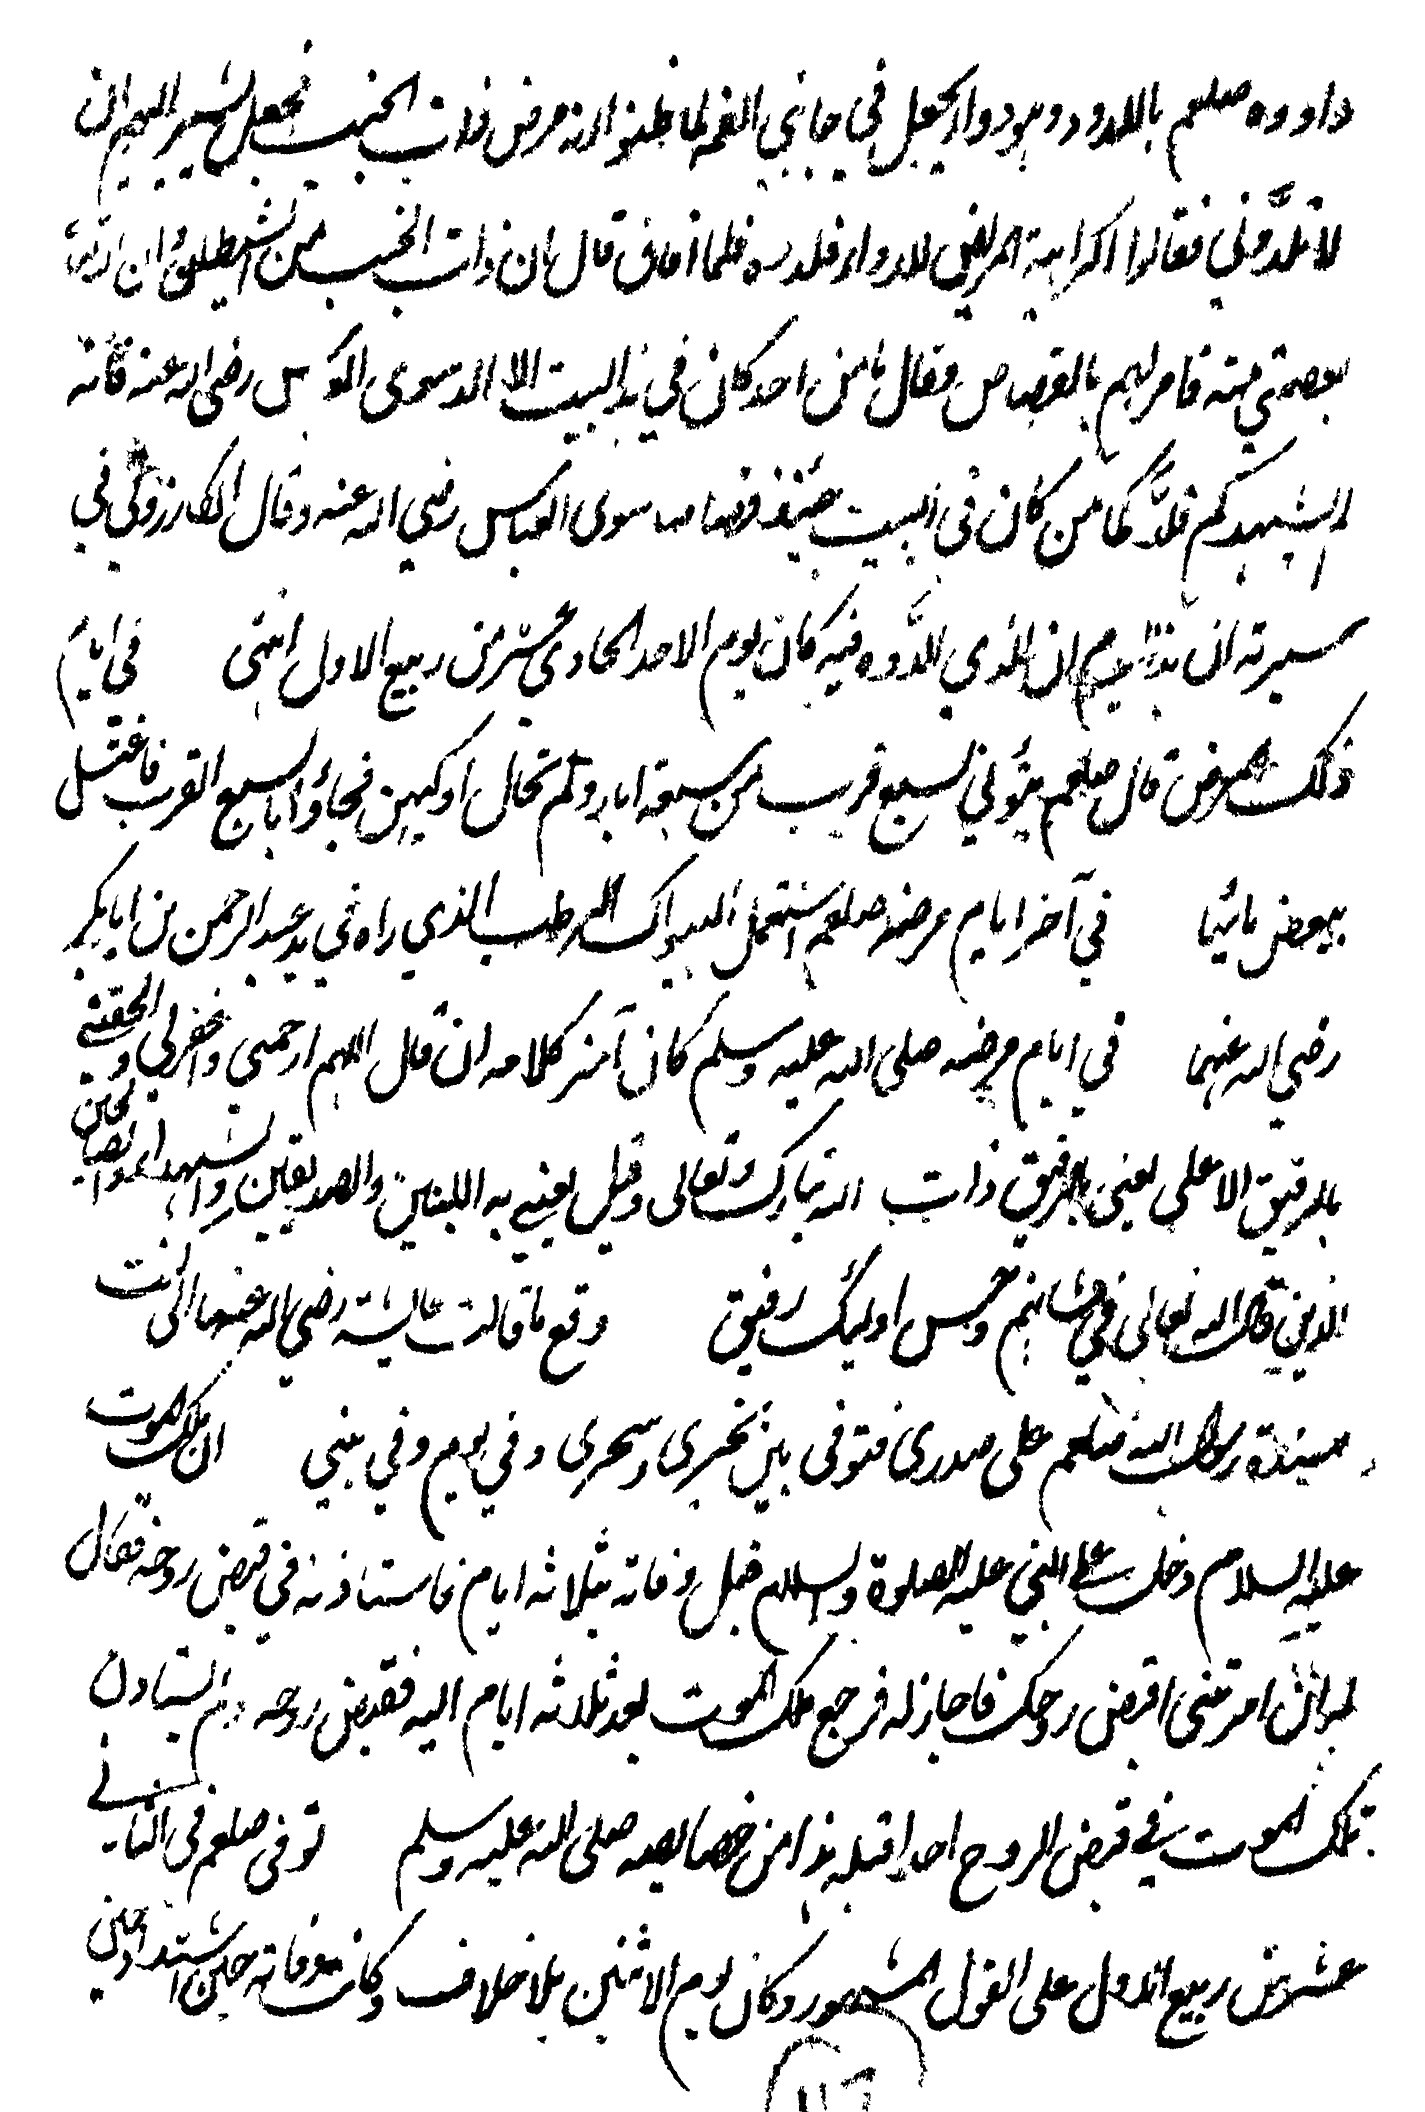 داووه صلعم باللدود وهو دواء يجعل في جانبي الفم لما ظنوا انه مرض ذات الجنب فجعل يشير اليهم ان
لا تلدوني فقالوا كراهية المريض للدواء فلدوه فلما افاق قال ان ذات الجنب من الشيطان وان الله
يعصمني منه فامرهم بالقصاص فقال ما من احد كان في هذا البيت الا لد سوى العباس رضي الله عنه فانه
لم يشهدكم فلد كلما من كان في البيت حينئذ قصاصا سوى العباس رضي الله عنه وقال الكازروني في
سيرته ان هذا اليوم ان الذي لدوه فيه كان يوم الاحد الحادي عشر من ربيع الاول انتهى في ايام
ذلك المرض قال صلعم يتوني بسبع قرب من سبعة ابار ولم تحال اوكيهن فجاؤا بالسبع القرب فاغتسل
ببعض مائها في آخر ايام مرضه صلعم استعمل السواك الرطب الذي راه في يد عبد الرحمن بن ابابكر
رضي الله عنهما في ايام مرضه صلى الله عليه وسلم كان آخر كلامه ان قال اللهم ارحمني واغفرلي والحقني
بالرفيق الاعلى يعني بالرفيق ذات الله تبارك وتعالى وقيل يعني به النبيين والصديقين والشهداء والصالحين
الذين قال الله تعالى في شانهم وحسن اوليك رفيق وقع ما قالت عايشة رضي الله عنها اني كنت
مسندة رسول الله صلعم على صدري فتوفى بين نحري وسحري وفي يومي وفي بيتي ان ملك الموت
عليه السلام دخل على النبي عليه الصلوة والسلام قبل وفاته بثلاثة ايام فاستاذنه في قبض روحه فقال
لم امرتني اقبض روحك فاجاز له فرجع ملك الموت بعد ثلاثة ايام اليه فقبض روحه ولم يستاذن
ملك الموت في قبض الروح احدا قبله هذا من خصايصه صلى الله عليه وسلم توفى صلعم في الثاني
عشر من ربيع الاول على القول المشهور وكان يوم الاثنين بلا خلاف وكانت وفاته حين اشتد